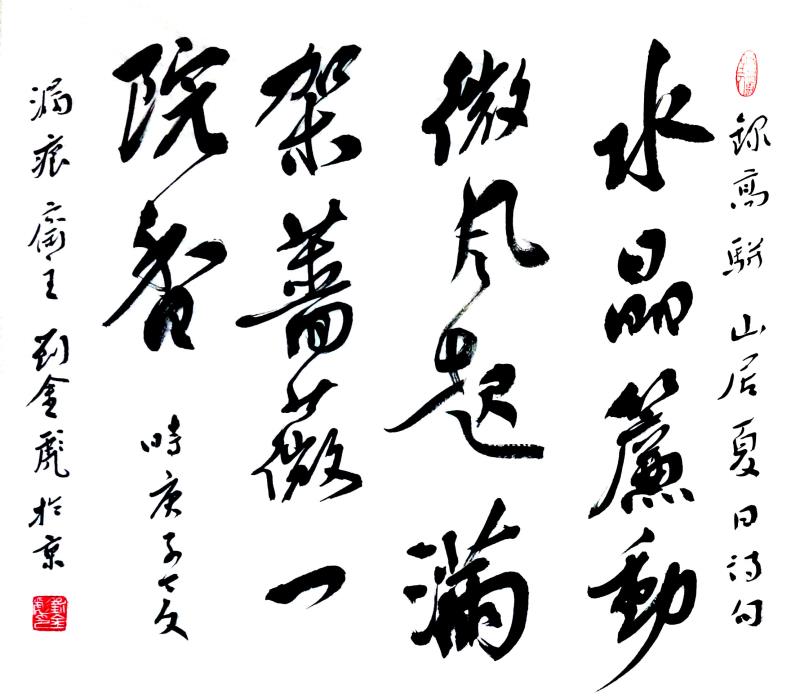 錄高駢 山居夏日詩句
水晶簾動
微風起滿
架薔薇一
院香 時庚子
漏痕齋主 劉金彪於京